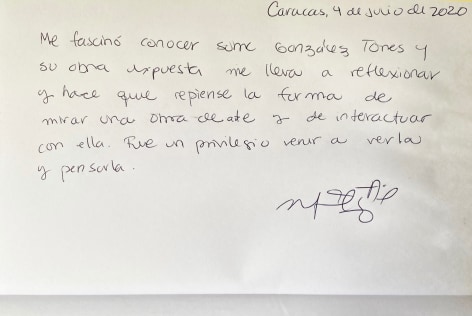 Caracas, 4 de junio de 2020
Me fascinó conocer some González Torres y
su obra expuesta me lleva a reflexionar
y hace que repiense la forma de
mirar una obra de ate y de interactuar
con ella. Fue un privilegio venir a verla
y pensarla.